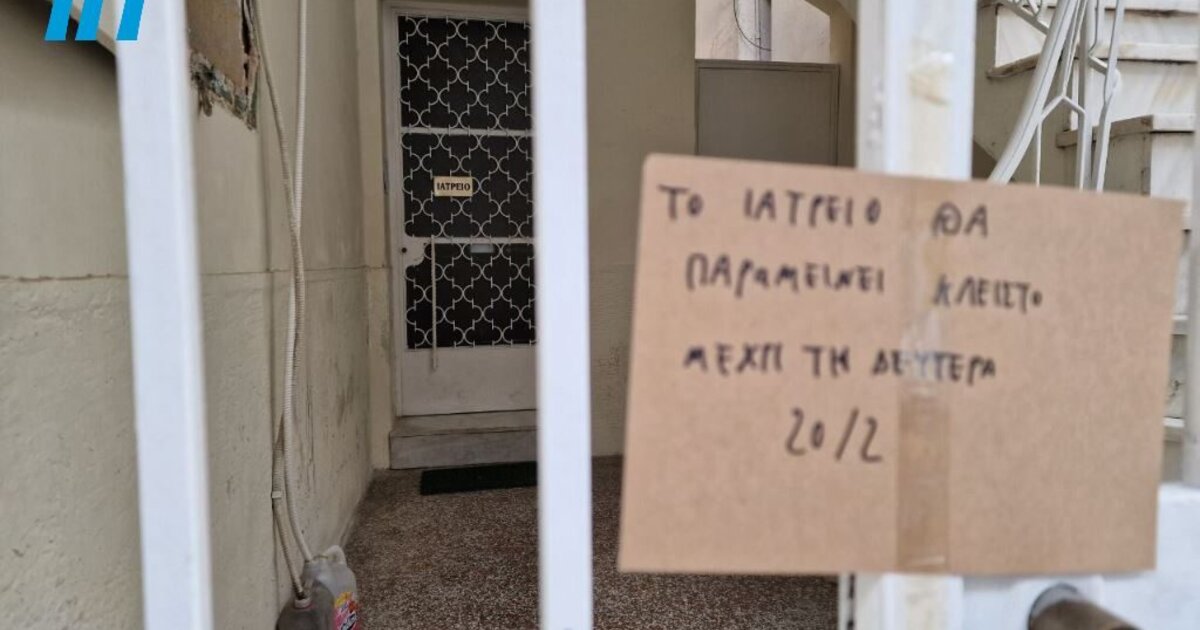 ΙΑΤΡΕΙΟ
ΤΟ ΙΑΤΡΕΙΟ ΘΑ
ΠΑΡαΜΕΙΝΕΙ ΚΛΕΙΣΤΟ
ΜΕΧΠΙ ΤΗ ΔΕΥΤΕΡΑ
20/2